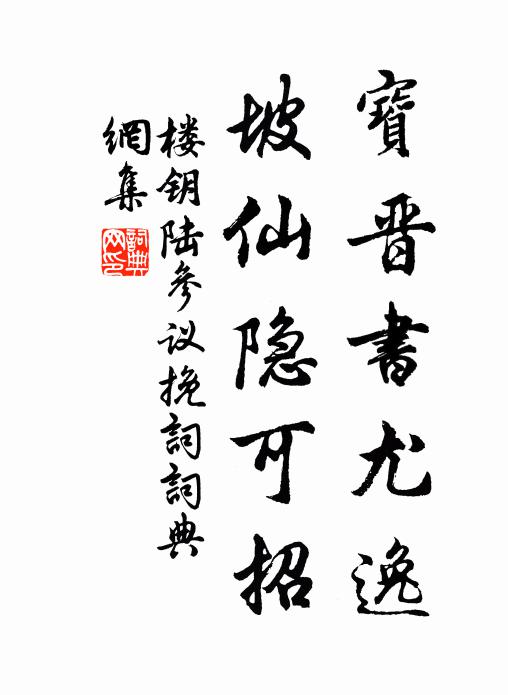 寶晋書尤逸
坡仙隐可招
楼钥陆參议挽詞詞典
網集
詞典
网印